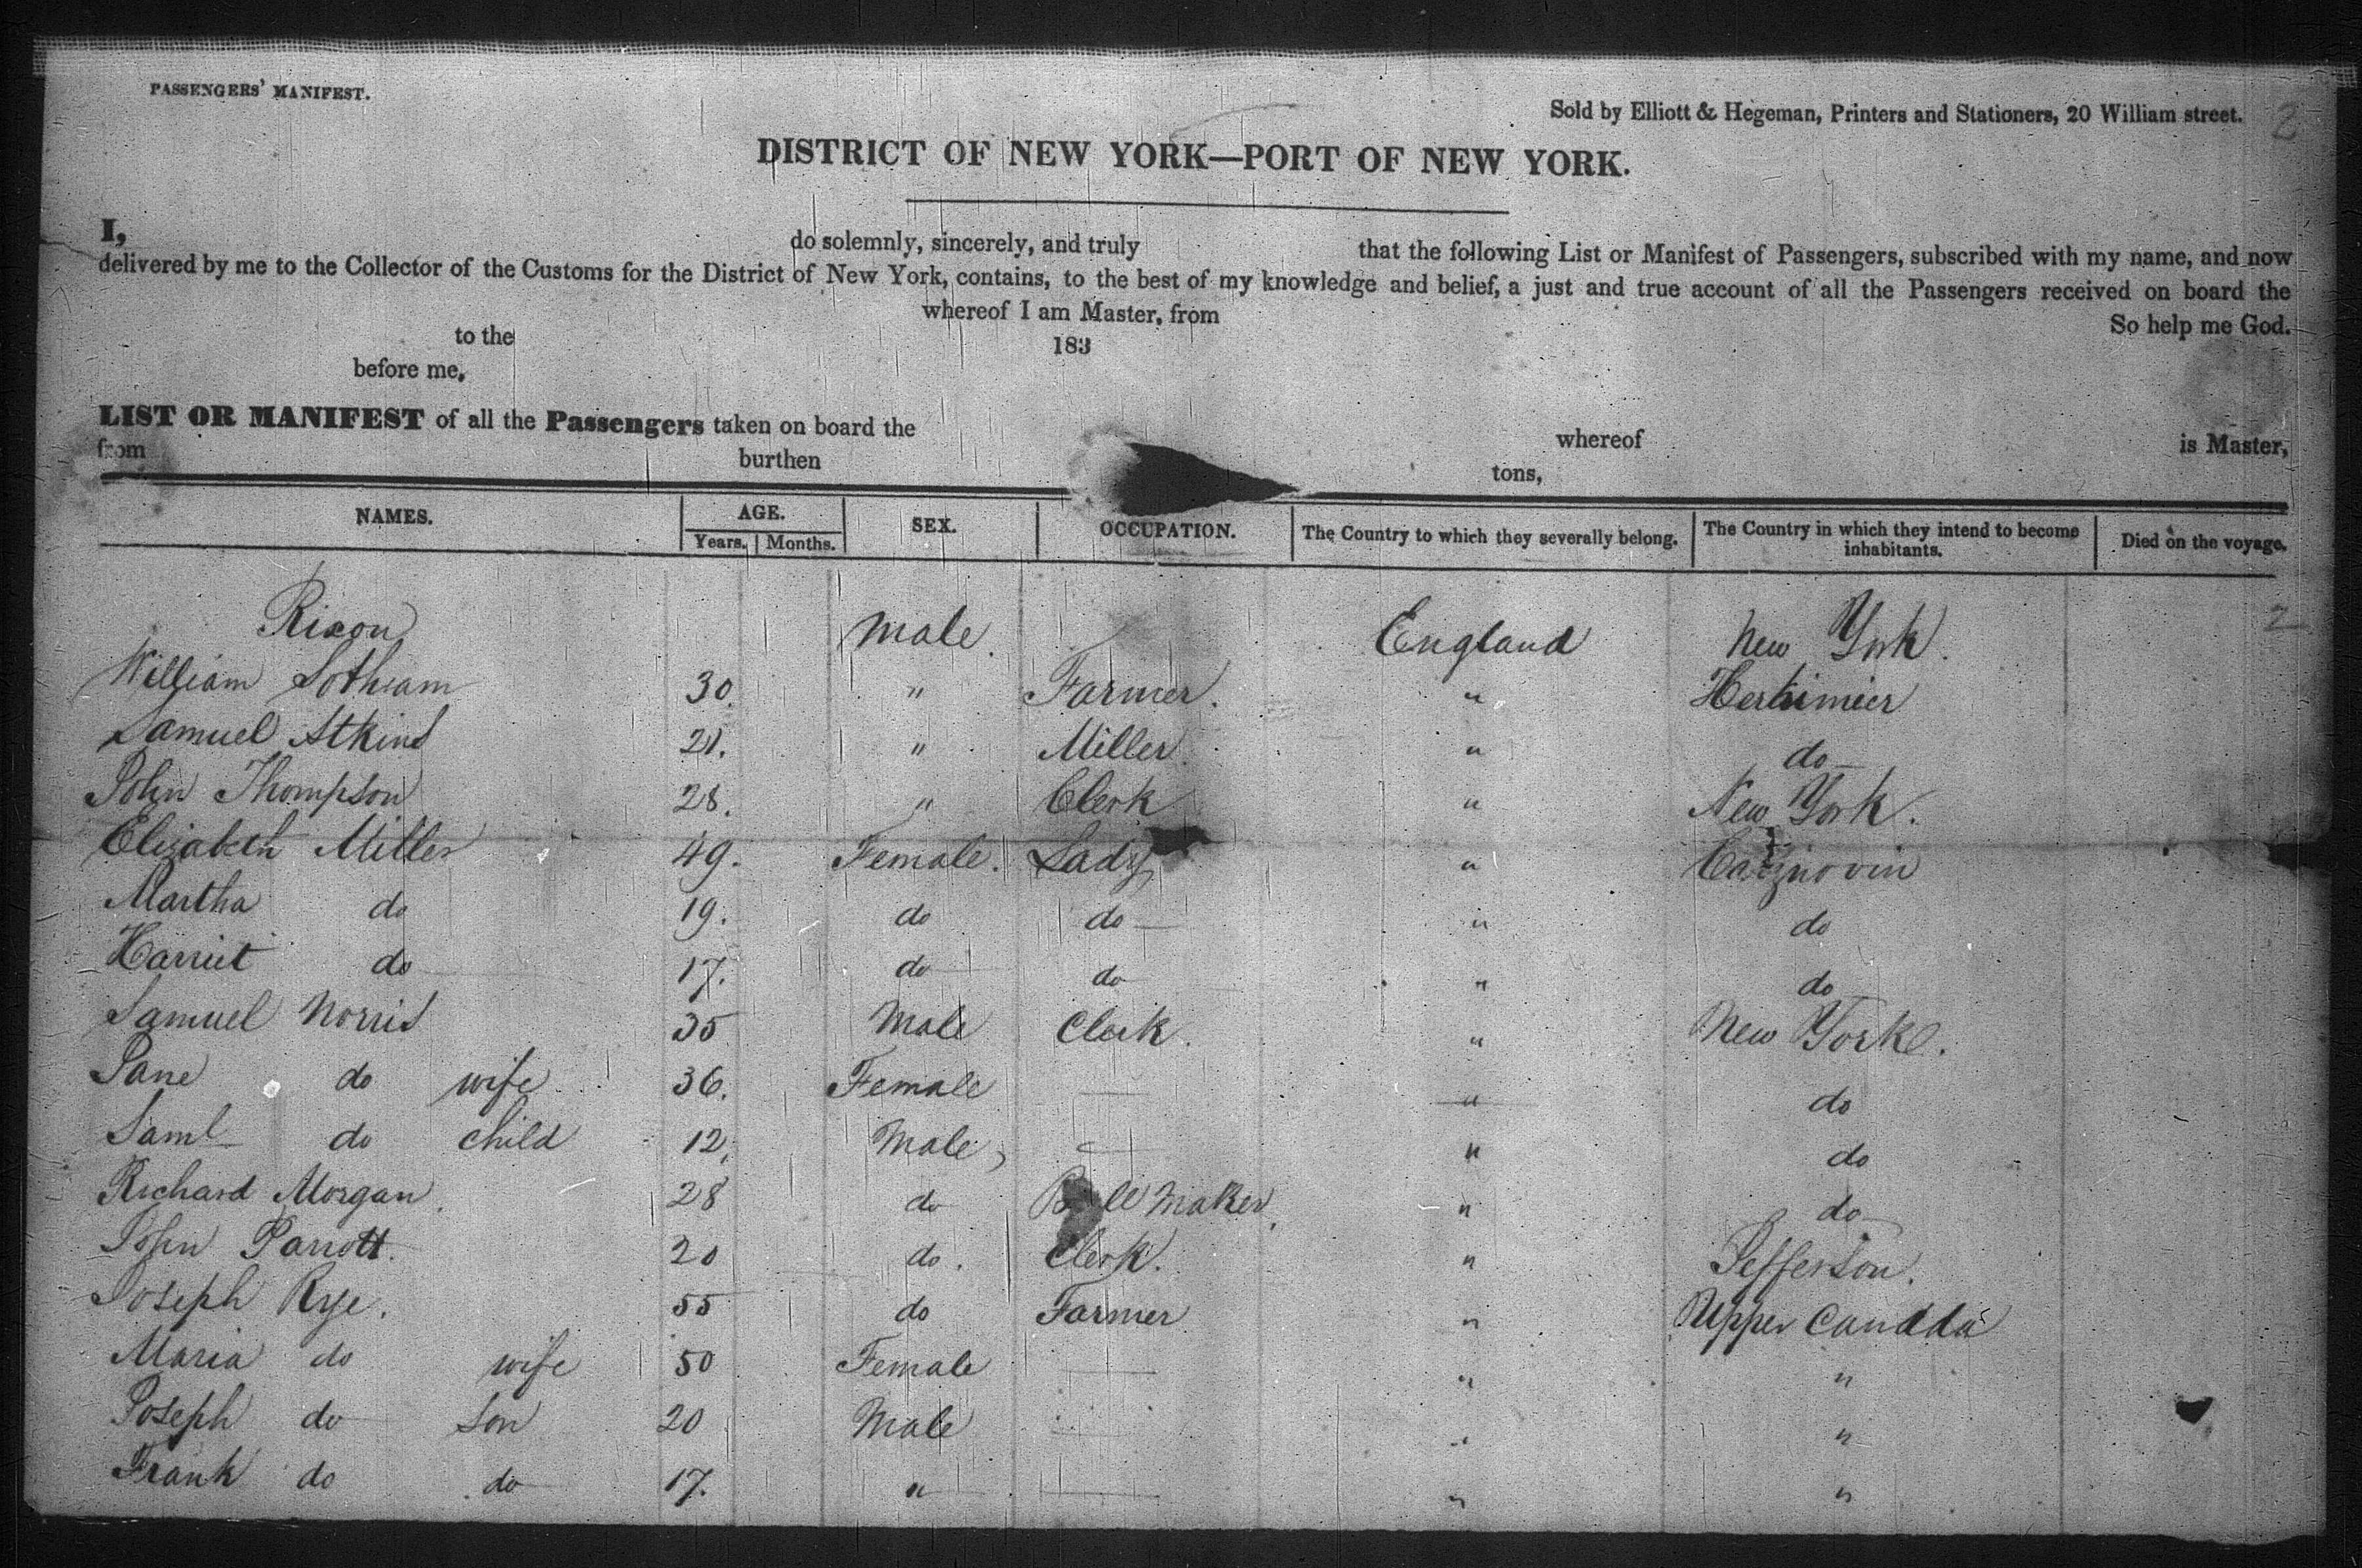 PASSENGERS' MANIFEST.
Sold by Elliott & Hegeman, Printers and Stationers, 20 William street. 2
DISTRICT OF NEW YORK—PORT OF NEW YORK.
I, do solemnly, sincerely, and truly that the following List or Manifest of Passengers, subscribed with my name, and now
delivered by me to the Collector of the Customs for the District of New York, contains, to the best of my knowledge and belief, a just and true account of all the Passengers received on board the
whereof I am Master, from
to the So help me God.
183
before me,
LIST OR MANIFEST of all the Passengers taken on board the whereof is Master,
from burthen tons,
NAMES. AGE. SEX. OCCUPATION. The Country to which they severally belong. The Country in which they intend to become inhabitants. Died on the voyage.
Years. Months.
Rixon male. England New York. 2
William Sotham 30. " Farmer. " Herkimier
Samuel Atkins 21. " Miller " do
John Thompson 28. " Clerk " New York.
Elizabeth Miller 49. Female. Lady "
Martha do 19. do do " do
Harriet do 17. do do " do
Samuel Norris 35 Male Clerk. " New York.
Jane do wife 36. Female — " do
Saml do child 12. Male, — " do
Richard Morgan 28 do Maker " do
John Parrott 20 do. Clerk. " Jefferson.
Joseph Rye. 55 do Farmer " Upper Canada
Maria do wife 50 Female — " "
Joseph do son 20 Male — " "
Frank do do 17. " — " "